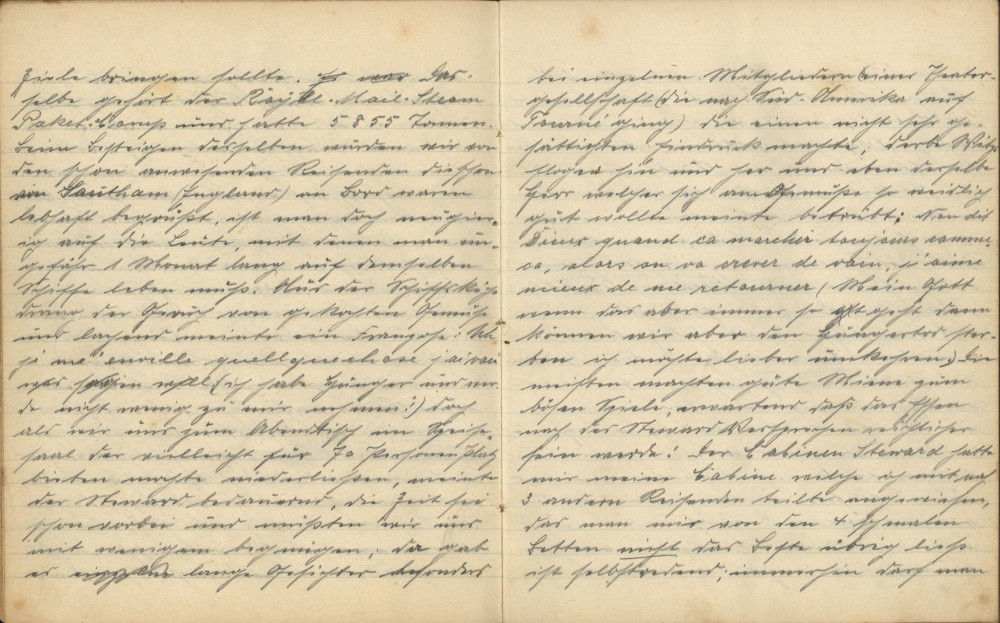 Ziele bringen sollte. Es war Das-
selbe gehört der Royal-Mail-Steam
Paket-Comp und hatte 5855 Tonnen.
Beim Besteigen desselben wurden wir von
den schon anwesenden Reisenden die schon
von Southam (England) an Bord waren
lebhaft begrüßt, ist man doch neugier-
ig auf die Leute, mit denen man un-
gefähr 1 Monat lang auf demselben
Schiffe leben muß. Aus der Schiffsküche
drang der Geruch von gekochten Gemüse
und lachend meinte ein Franzose:
j'ai
(ich habe Hunger und wer-
de nicht wenig zu mir nehmen!) doch
als wir uns zum Abendtisch im Speise-
saal der vielleicht für 70 Personen Platz
bieten mochte niederließen, meinte
der Steward bedauernd, die Zeit sei
schon vorbei und müßten wir uns
mit wenigem begnügen; da gab
es lange Gesichter besonders
bei einzelnen Mitgliedern einer Theater-
gesellschaft (die nach Süd-Amerika auf
Tourné ging) die einen nicht sehr ge-
sättigten Eindruck machte; derbe Witze
flogen hin und her und eben derselbe
Herr welcher sich am Gemüße so
gut wollte meinte betrübt:
Dieus quand ca marcher toujours comme
ca, alors on va crever de , j'aime
mieux de me retourner (Mein Gott
wenn das aber immer so geht dann
können wir aber den Hungertod ster-
ben ich möchte lieber umkehren.) Die
meisten machten gute Miene zum
bösen Spiele, erwartend daß das Essen
nach der Steward Versprechen reichlicher
sein werde! Der Cabinen Steward hatte
mir meine Cabine welche ich mit noch
3 andern Reisenden teilte angewiesen,
das man mir von den 4 schmalen
Betten nicht das Beste übrig ließ
ist selbstredend; immerhin darf man